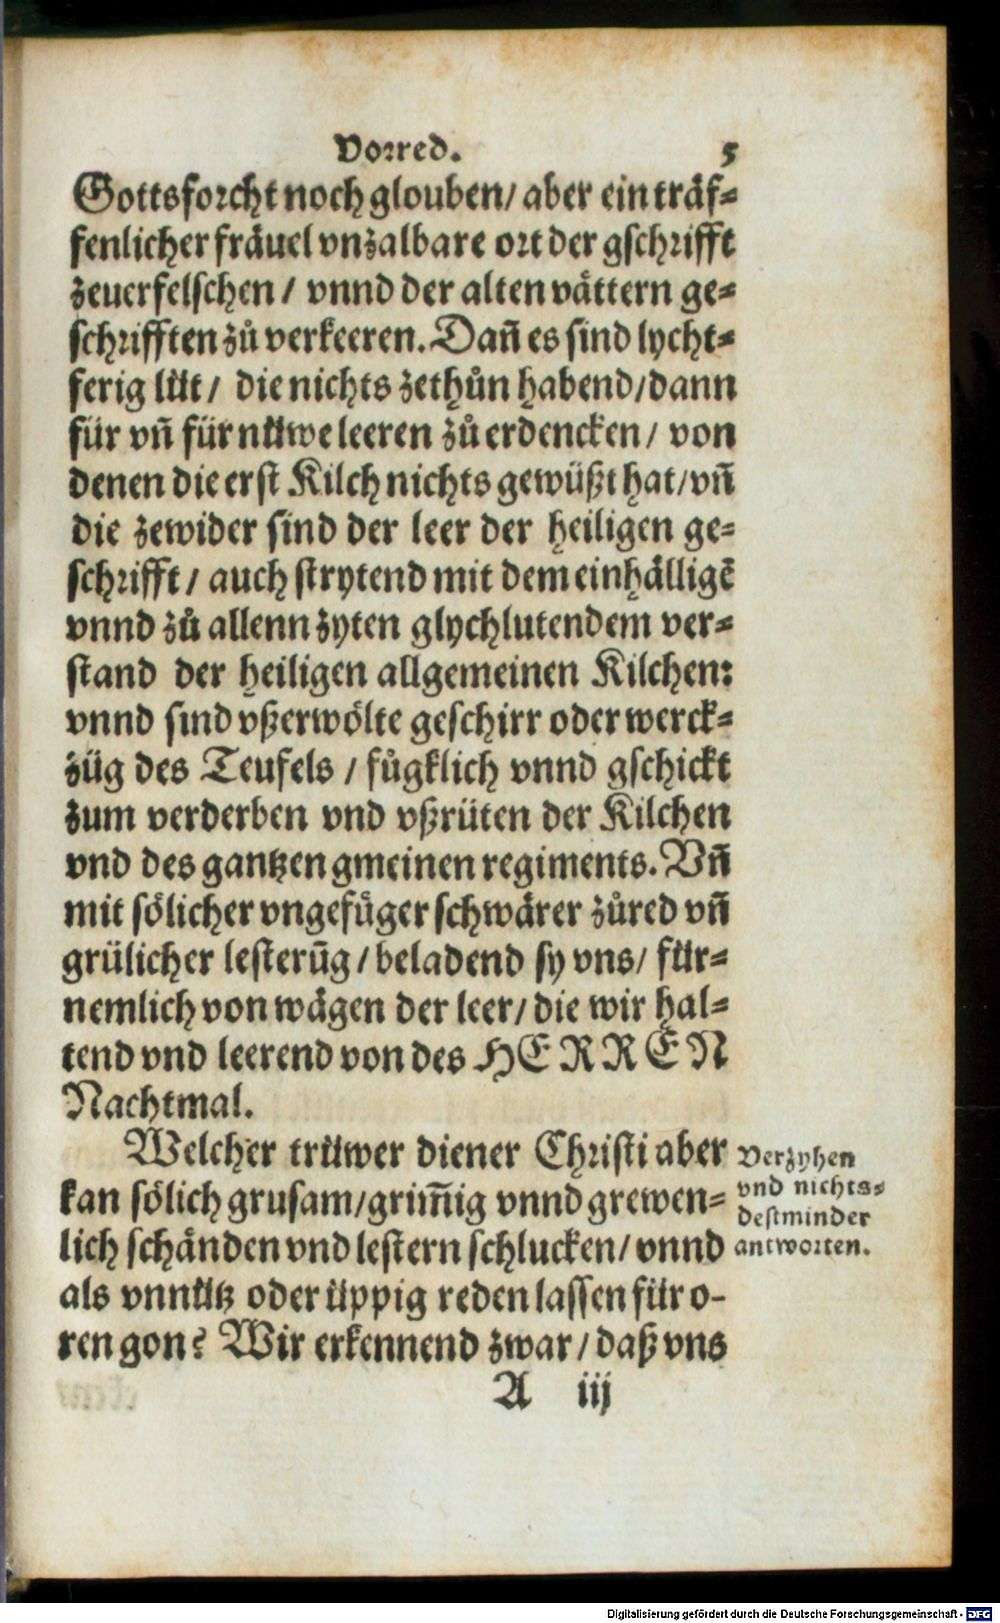 Vorred. 5
Gottsforcht noch glouben/ aber ein träf⸗
fenlicher fräuel vnzalbare ort der gschrifft
zeuerfelschen / vnnd der alten vättern ge⸗
schrifften zů verkeeren. Dañ es sind lycht⸗
ferig lüt/ die nichts zethůn habend/dann
für vñ für nüwe leeren zů erdencken/ von
denen die erst Kilch nichts gewüßt hat/vñ
die zewider sind der leer der heiligen ge⸗
schrifft/ auch strytend mit dem einhälligẽ
vnnd zů allenn zyten glychlutendem ver⸗
stand der heiligen allgemeinen Kilchen:
vnnd sind vßerwölte geschirr oder werck⸗
züg des Teufels / fůgklich vnnd gschickt
zum verderben vnd vßrüten der Kilchen
vnd des gantzen gmeinen regiments. Vñ
mit sölicher vngefüger schwärer zůred vñ
grülicher lesterūg/beladend sy vns/ für⸗
nemlich von wägen der leer/ die wir hal⸗
tend vnd leerend von des HERREN
Nachtmal.
Welcher trüwer diener Christi aber
kan sölich grusam/grim̄ig vnnd grewen⸗
lich schänden vnd lestern schlucken/ vnnd
als vnnütz oder üppig reden lassen für o-
ren gon? Wir erkennend zwar/ daß vns
Verzyhen
vnd nichts⸗
destminder
antworten.
A iij
Digitalisierung gefördert durch die Deutsche Forschungsgemeinschaft - DFG